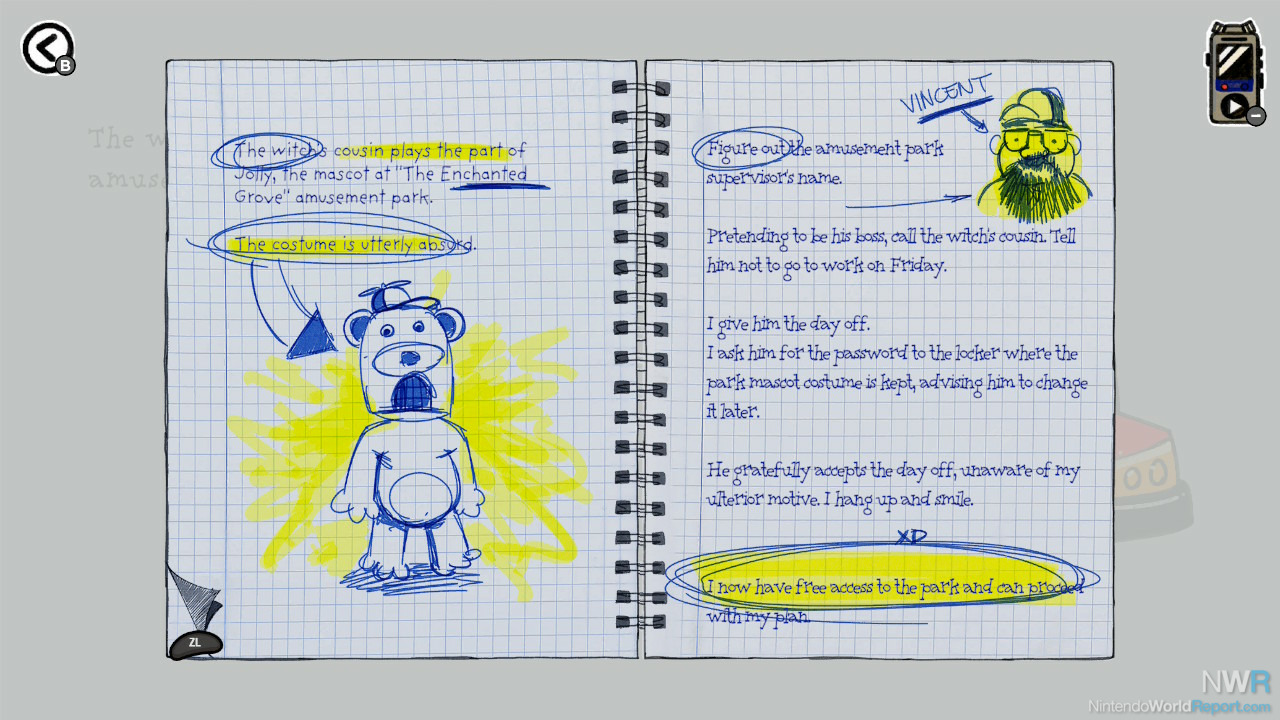 B
The w
amuse
The witch's cousin plays the part of
Jolly, the mascot at "The Enchanted
Grove" amusement park.
The costume is utterly absurd.
ZL
VINCENT
Figure out the amusement park
supervisor's name.
Pretending to be his boss, call the witch's cousin. Tell
him not to go to work on Friday.
I give him the day off.
I ask him for the password to the locker where the
park mascot costume is kept, advising him to change
it later.
He gratefully accepts the day off, unaware of my
ulterior motive. I hang up and smile.
XD
I now have free access to the park and can proceed
with my plan.
NWR
NintendoWorldReport.com